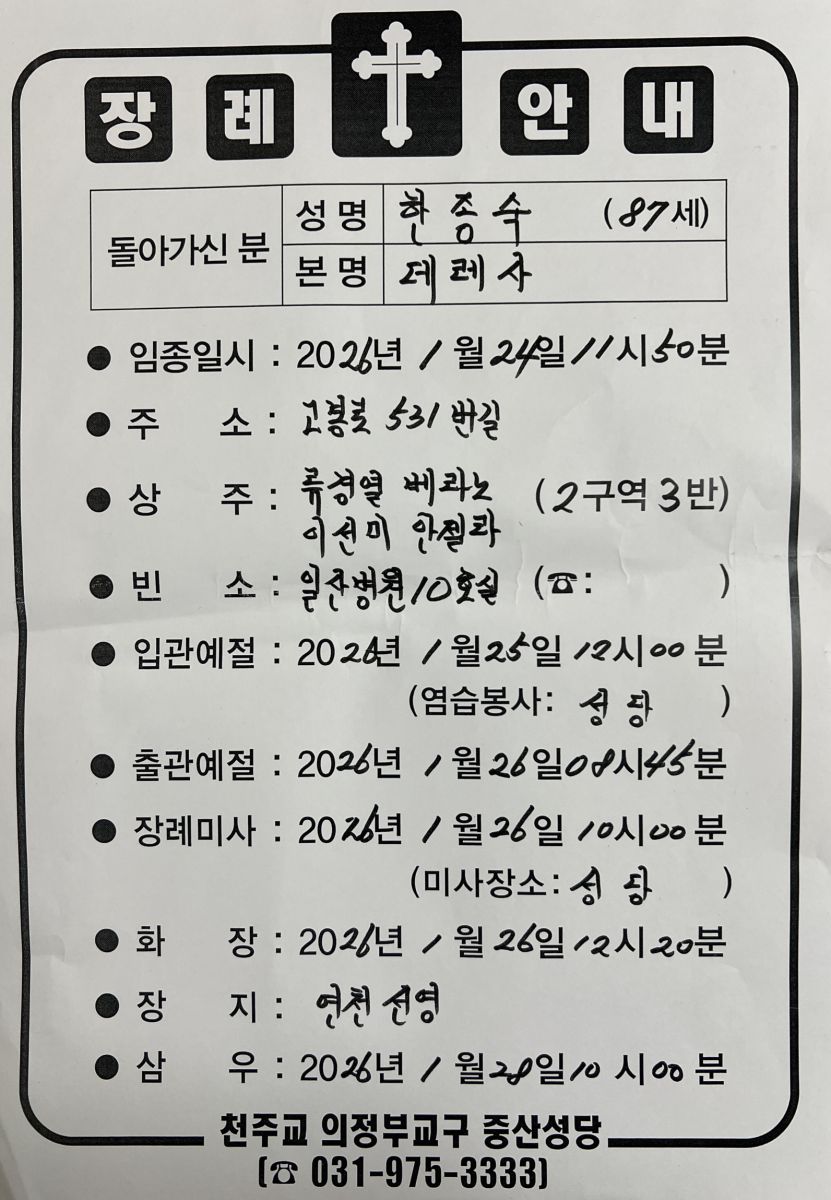 장례 안내
돌아가신 분
성명 한종숙 (87세)
본명 데레사
● 임종일시 : 2026년 1월 24일 11시 50분
● 주 소 : 고봉로 531번길
● 상 주 : 류경열 베라노 (2구역 3반)
이선미 안젤라
● 빈 소 : 일산병원 10호실 (☎: )
● 입관예절 : 2026년 1월 25일 12시 00분
(염습봉사: 성당 )
● 출관예절 : 2026년 1월 26일 08시 45분
● 장례미사 : 2026년 1월 26일 10시 00분
(미사장소: 성당 )
● 화 장 : 2026년 1월 26일 12시 20분
● 장 지 : 연천 선영
● 삼 우 : 2026년 1월 28일 10시 00분
천주교 의정부교구 중산성당
(☎ 031-975-3333)